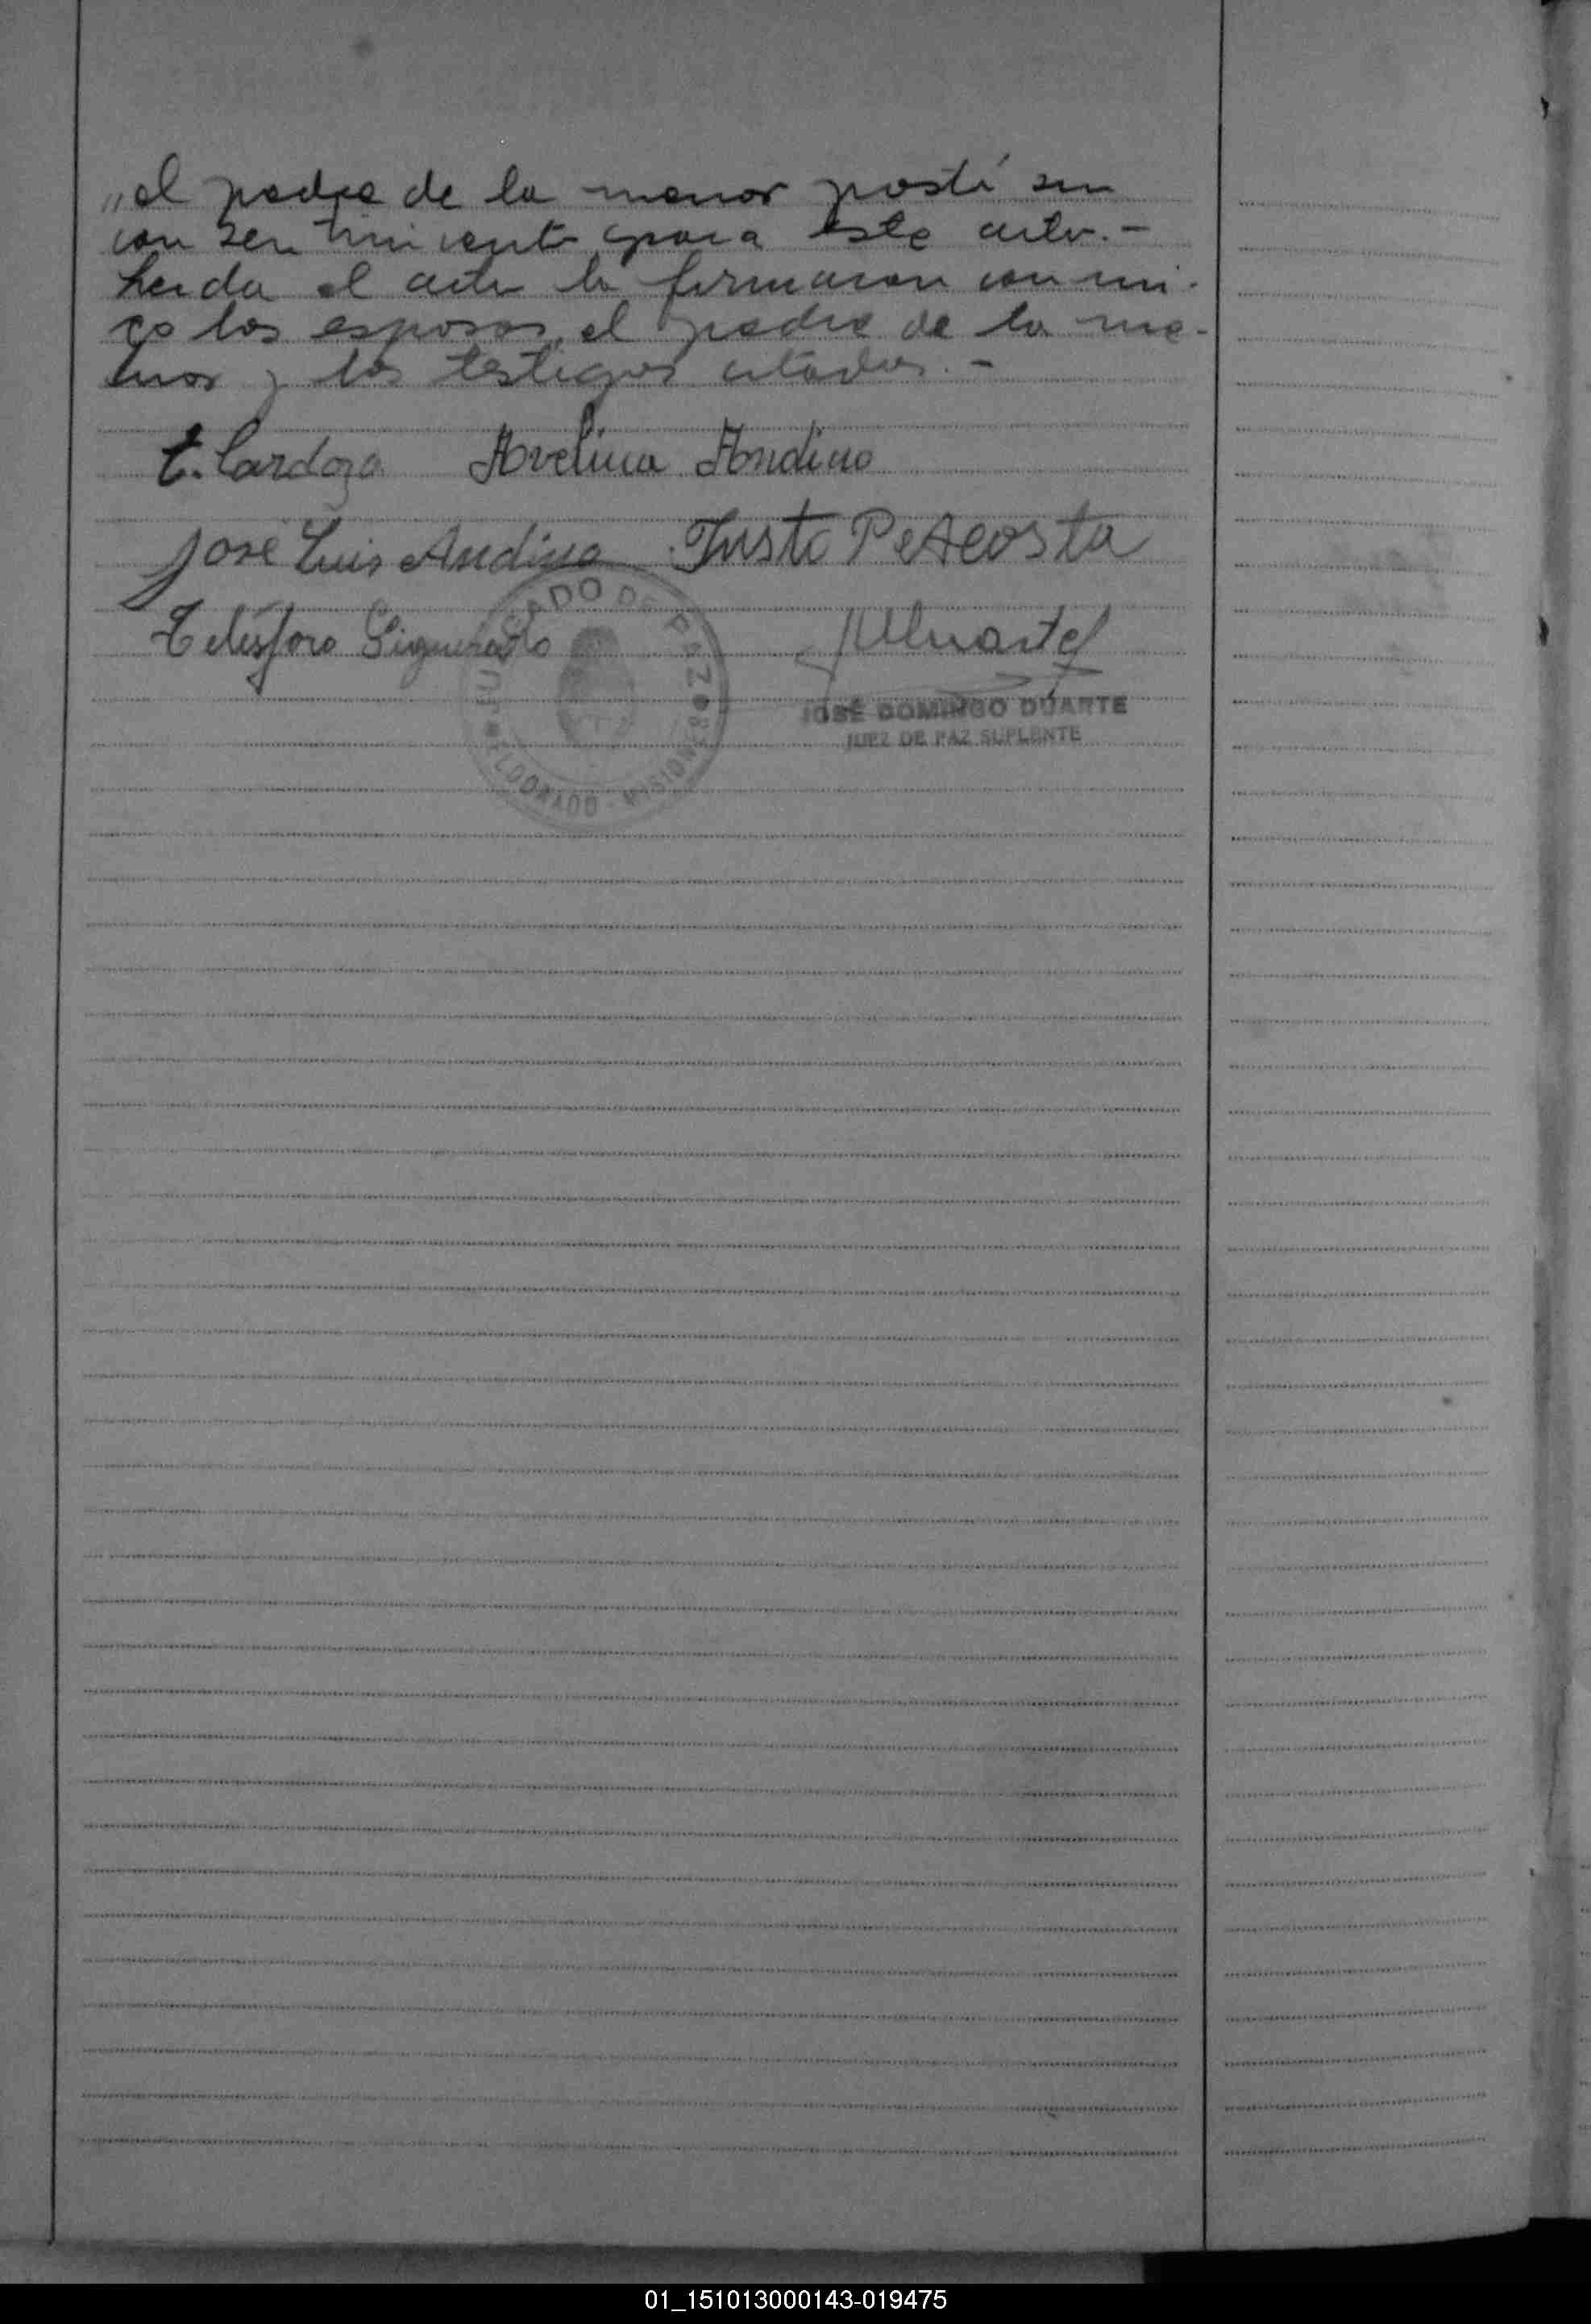 „el padre de la menor prestó su
consentimiento para este acto.-
Leida el acta la firmaron conmi-
go los esposos, el padre de la me-
nor y los testigos citados.-
Cardozo Avelina Andino
José Luis Andino Justo P. Acosta
Telésforo
JUZGADO DE PAZ
ELDORADO - MISIONES
JOSÉ DOMINGO DUARTE
JUEZ DE PAZ SUPLENTE
01_151013000143-019475